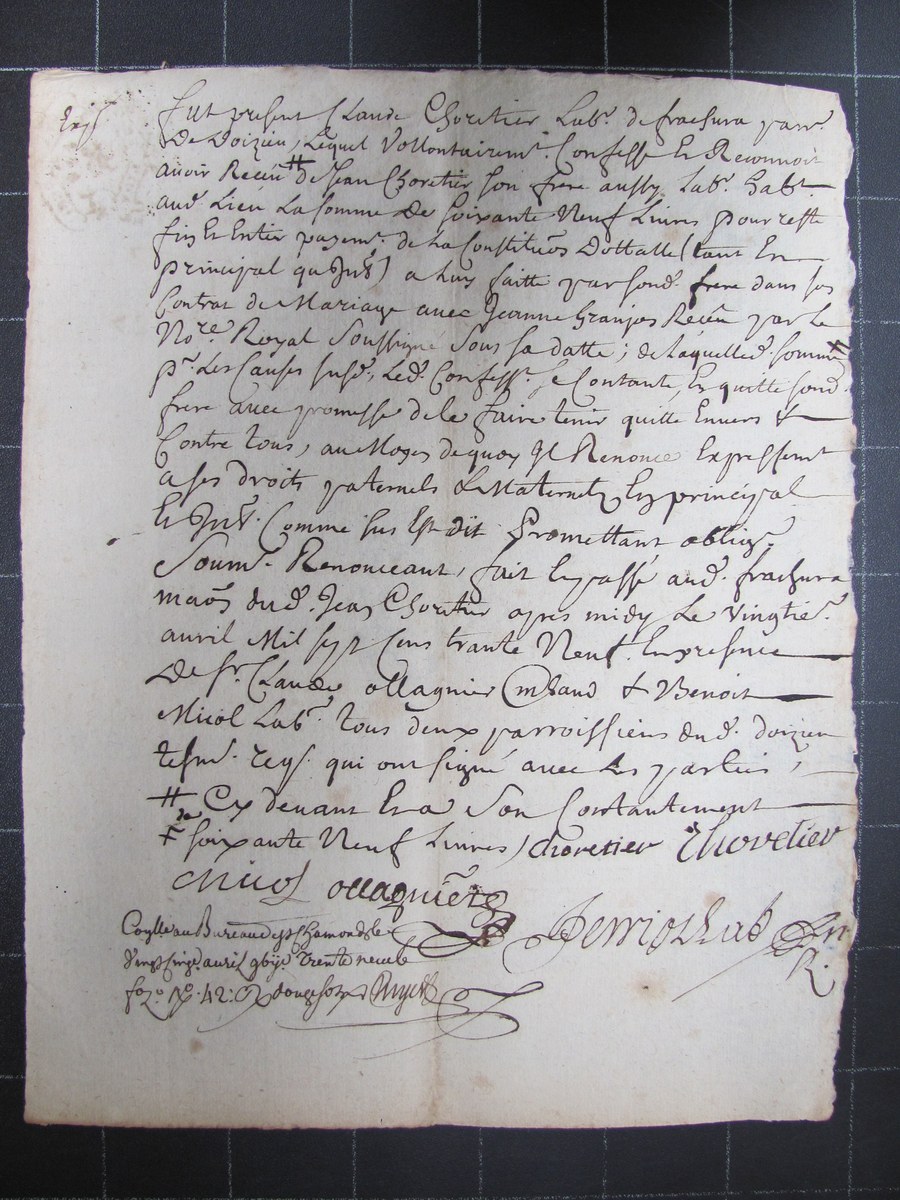 fut present Claude Choretier Labr. de frachura parr.
De Doizieu, Lequel Vollontairemt. Confesse Et Reconnoit
auoir Receu # de Jean Choretier son frere aussy Labr. habt
aud. Lieu La somme de soixante Neuf Liures pour reste
fin Et Entier payemt. de La Constituõn Dottalle (tant En
principal qu'Intt) a Luy faitte par sond. frere dans son
Contrat de Mariage auec Jeanne Granjon Receu par Le
Nore. Royal soussigné sous sa datte, de Laquelle d. somme F
pr. Les Causes susd., Led. Confesst. se Contante, Et quitte sond.
frere auec promesse de le faire tenir quitte Enuers &
Contre tous, au Moyen de quoy Il Renonce Expressemt
a ses droits paternels & Maternels En principal
Et Intt. Comme sus Est dit Promettant oblige.
Soumt. Renonceant, fait Et passé aud. frachura
maõn dud. Jean Choretier apres midy Le Vingtie.
auril Mil sept Cens trante Neuf. En presence
De sr. Claude ollagnier & Benoit
Nicol Labr. tous deux parroissiens dud. doizieu
tesm. req. qui ont signé auec Les parties,
# Cy deuant Et a son Contantement
F de soixante Neuf Liures) choretier Chovetier
Nicol ollagnier
au Bureau de St Chamond le
vingt cinq. auril 1739 trente neuf
fo. No. 42. R douze sols
R.